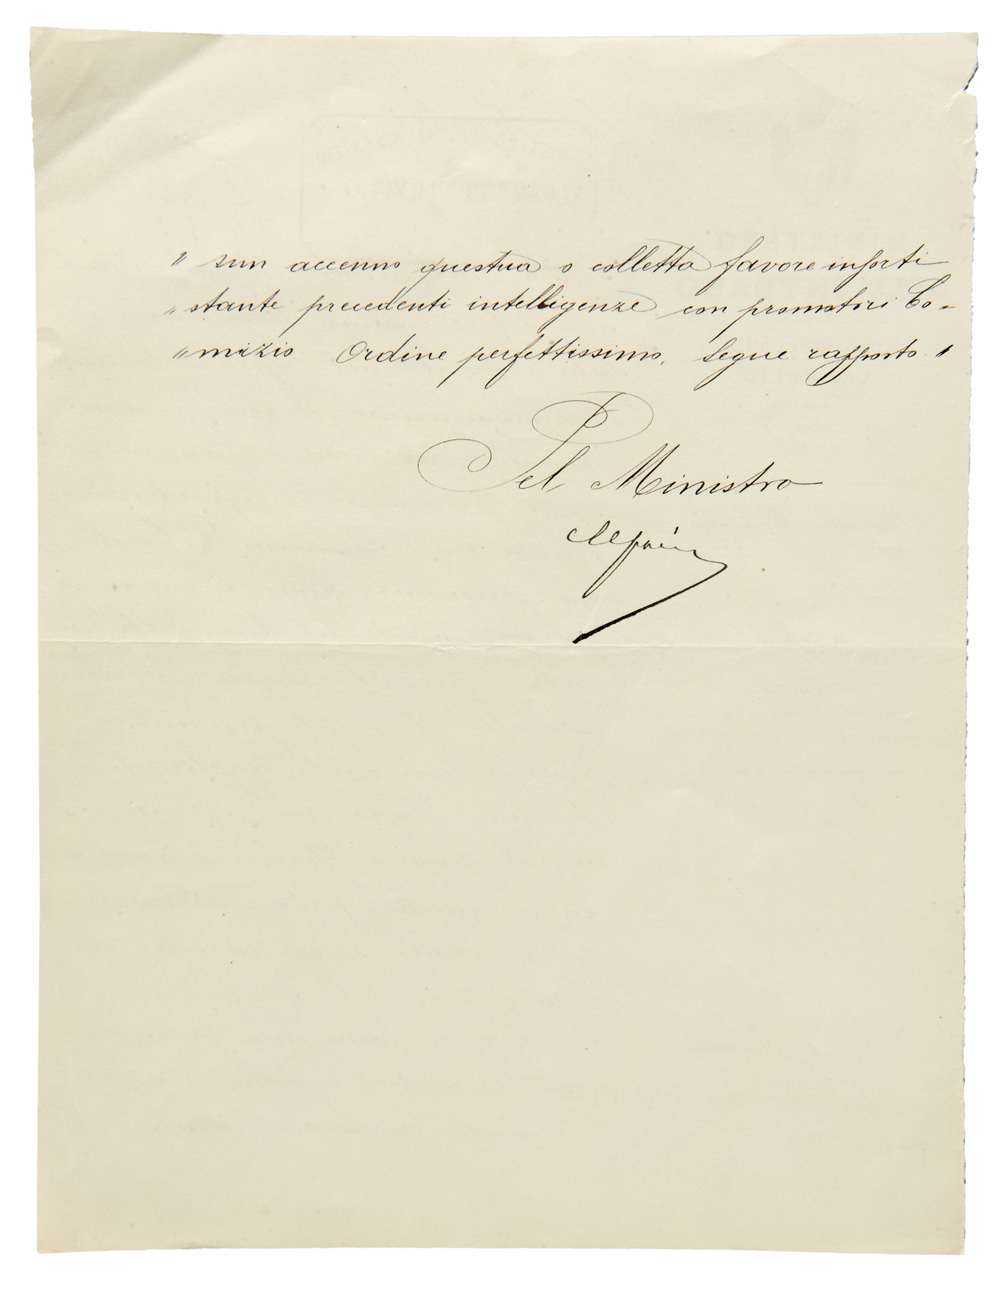 " sun accenno questua o colletta favore insorti
" stante precedenti intelligenze con promotori Co-
" mizio Ordine perfettissimo, Segue rapporto. "
Pel Ministro